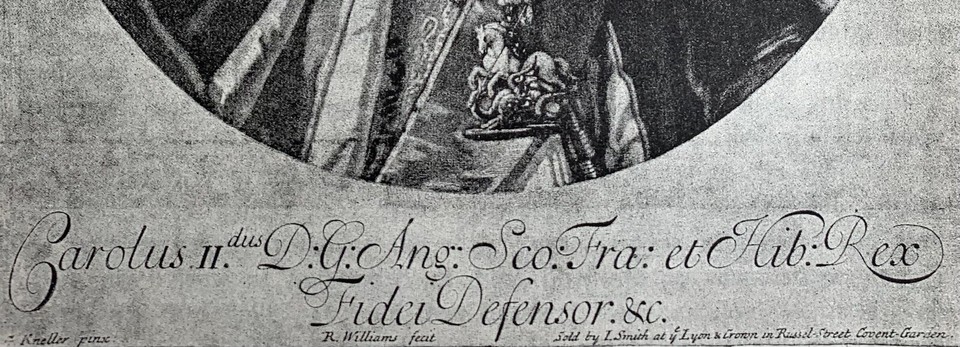 Carolus II.dus D: G: Ang: Sco: Fra: et Hib: Rex
Fidei Defensor. &c.
Kneller pinx: R. Williams fecit Sold by I. Smith at ye Lyon & Crown in Russel-Street Covent-Garden.